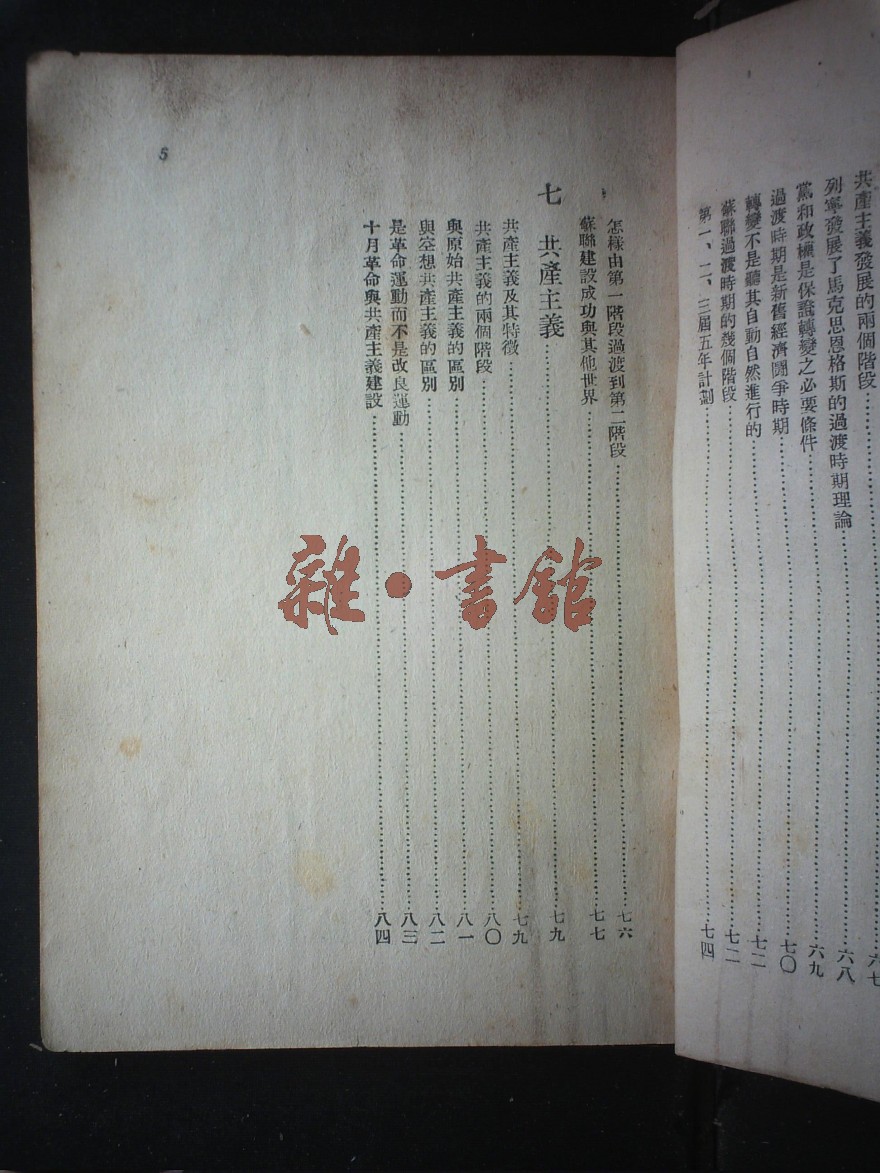 共產主義發展的兩個階段……六七
列寧發展了馬克思恩格斯的過渡時期理論……六八
黨和政權是保證轉變之必要條件……六九
過渡時期是新舊經濟鬪爭時期……七〇
轉變不是聽其自動自然進行的……七二
蘇聯過渡時期的幾個階段……七二
第一、二、三屆五年計劃……七四
怎樣由第一階段過渡到第二階段……七六
蘇聯建設成功與其他世界……七七
七 共產主義……七九
共產主義及其特徵……七九
共產主義的兩個階段……八〇
與原始共產主義的區別……八一
與空想共產主義的區別……八二
是革命運動而不是改良運動……八三
十月革命與共產主義建設……八四
5
雜·書館